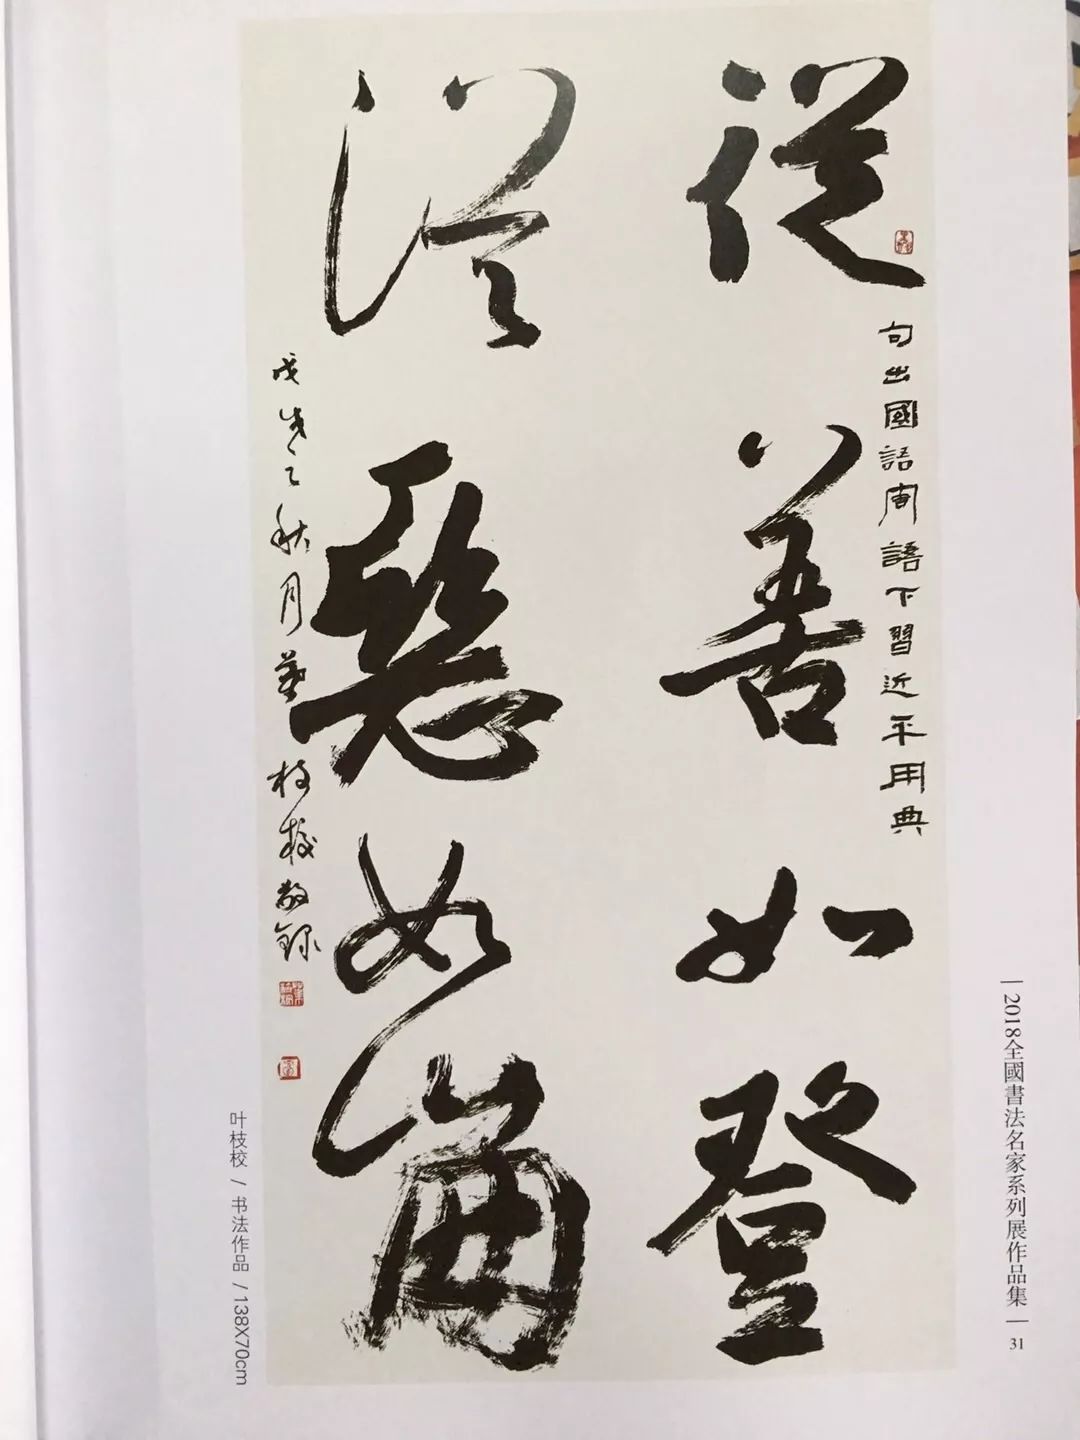 從善如登
從惡如崩
句出國語周語下習近平用典
戊戌之秋月葉枝校敬錄
叶枝校 / 书法作品 / 138X70cm
2018全國書法名家系列展作品集
31